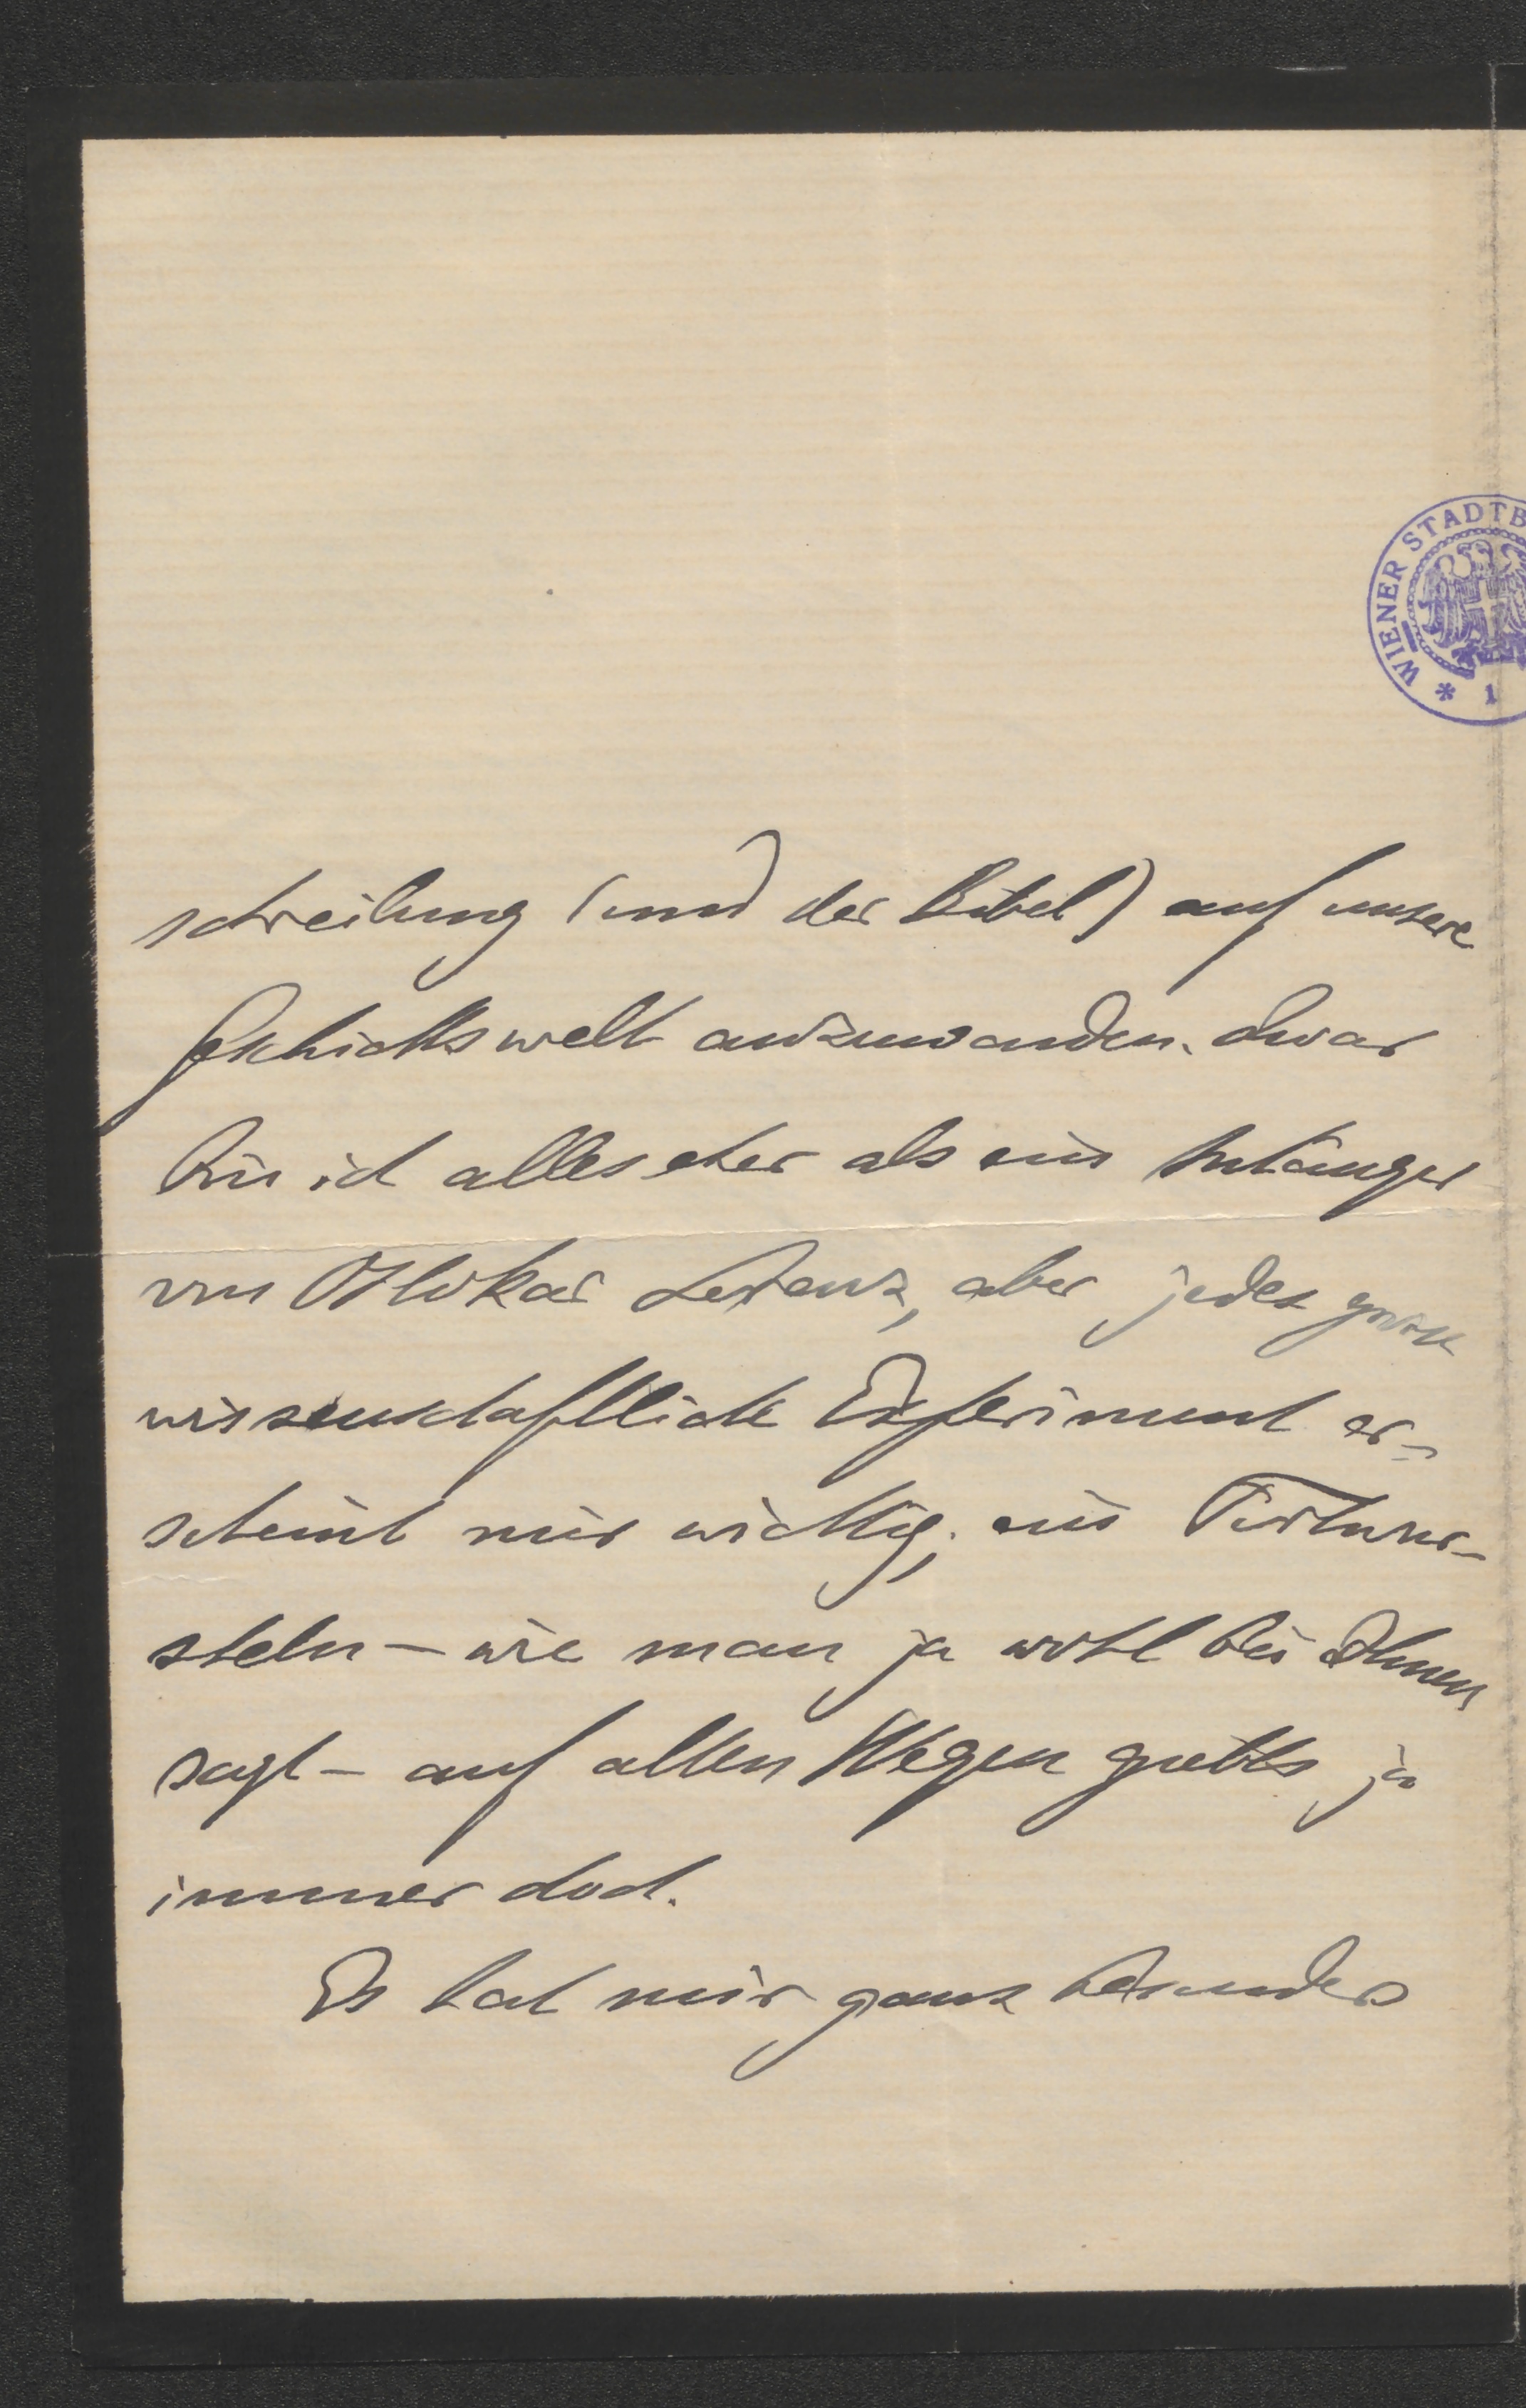 WIENER STADTB
* 1
schreibung (und der Bibel) auf unsere
Geschichtswelt anzuwenden. Zwar
bin ich alles eher als ein Anhänger
von Ottokar Lorenz, aber jedes große
wissenschaftliche Experiment er-
scheint mir wichtig; ein Fortwur-
steln – wie man ja wohl bei Ihnen
sagt – auf alten Wegen giebts ja
immer doch.
Es hat mir ganz besonders